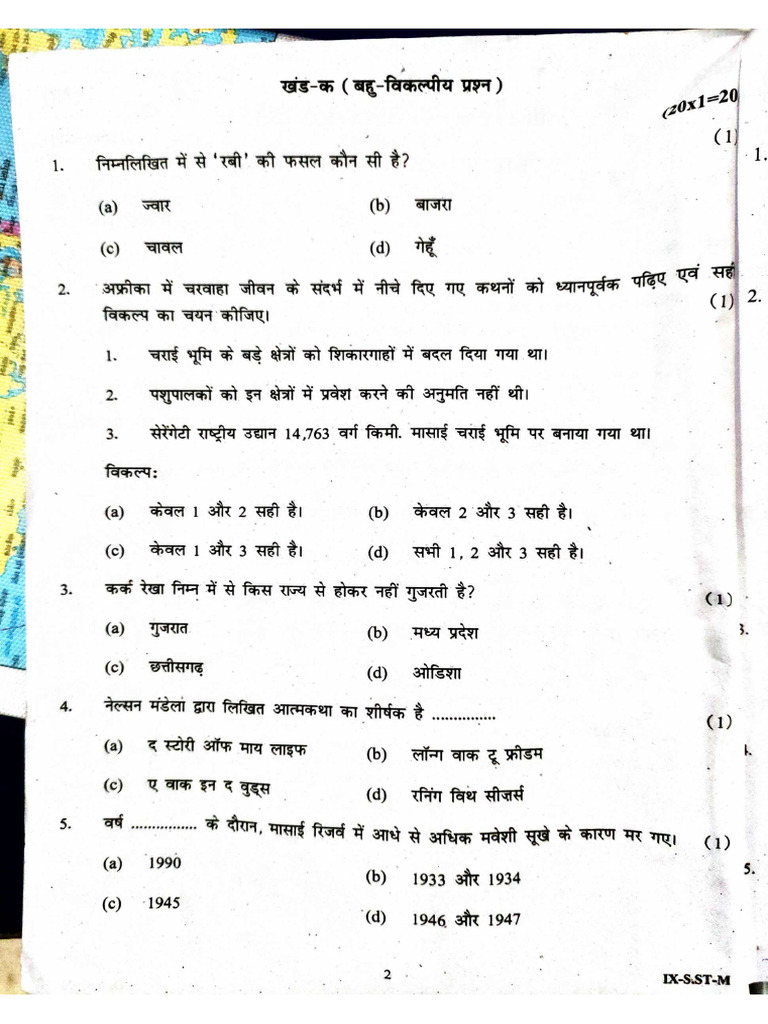 खंड-क ( बहु-विकल्पीय प्रश्न )
(20x1=20
1. निम्नलिखित में से 'रबी' की फसल कौन सी है? (1)
(a) ज्वार (b) बाजरा
(c) चावल (d) गेहूँ
2. अफ्रीका में चरवाहा जीवन के संदर्भ में नीचे दिए गए कथनों को ध्यानपूर्वक पढ़िए एवं सही
विकल्प का चयन कीजिए। (1)
1. चराई भूमि के बड़े क्षेत्रों को शिकारगाहों में बदल दिया गया था।
2. पशुपालकों को इन क्षेत्रों में प्रवेश करने की अनुमति नहीं थी।
3. सेरेंगेटी राष्ट्रीय उद्यान 14,763 वर्ग किमी. मासाई चराई भूमि पर बनाया गया था।
विकल्प:
(a) केवल 1 और 2 सही है। (b) केवल 2 और 3 सही है।
(c) केवल 1 और 3 सही है। (d) सभी 1, 2 और 3 सही है।
3. कर्क रेखा निम्न में से किस राज्य से होकर नहीं गुजरती है? (1)
(a) गुजरात (b) मध्य प्रदेश
(c) छत्तीसगढ़ (d) ओडिशा
4. नेल्सन मंडेला द्वारा लिखित आत्मकथा का शीर्षक है ............... (1)
(a) द स्टोरी ऑफ माय लाइफ (b) लॉन्ग वाक टू फ्रीडम
(c) ए वाक इन द वुड्स (d) रनिंग विथ सीज़र्स
5. वर्ष ................ के दौरान, मासाई रिजर्व में आधे से अधिक मवेशी सूखे के कारण मर गए। (1)
(a) 1990 (b) 1933 और 1934
(c) 1945 (d) 1946 और 1947
2
IX-S.ST-M
1.
2.
3.
5.